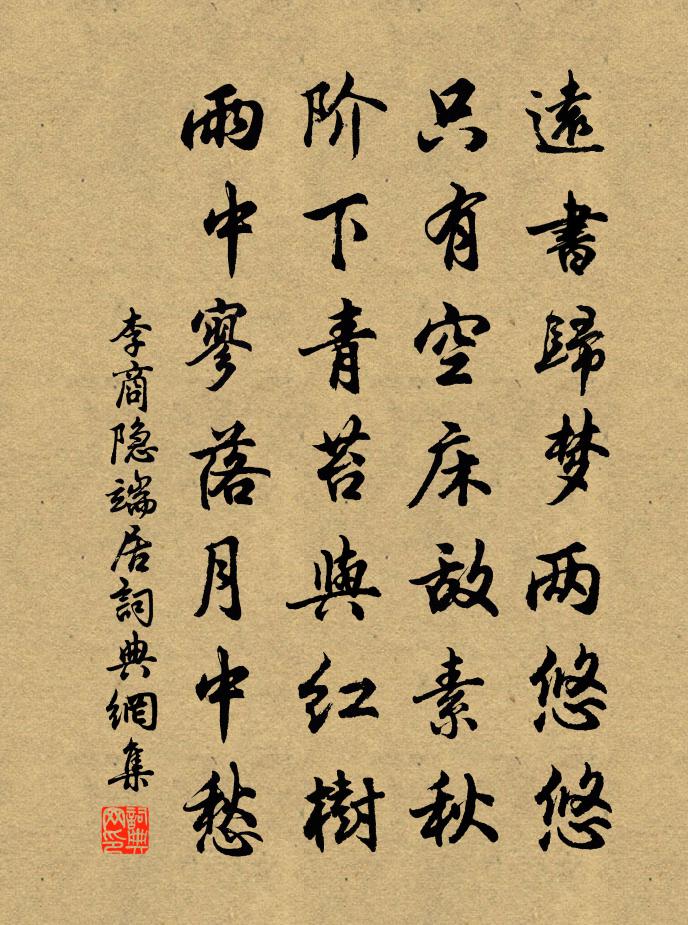 遠書歸梦两悠悠
只有空床敌素秋
阶下青苔與红樹
雨中寥落月中愁
李商隐端居詞典網集
詞典网印